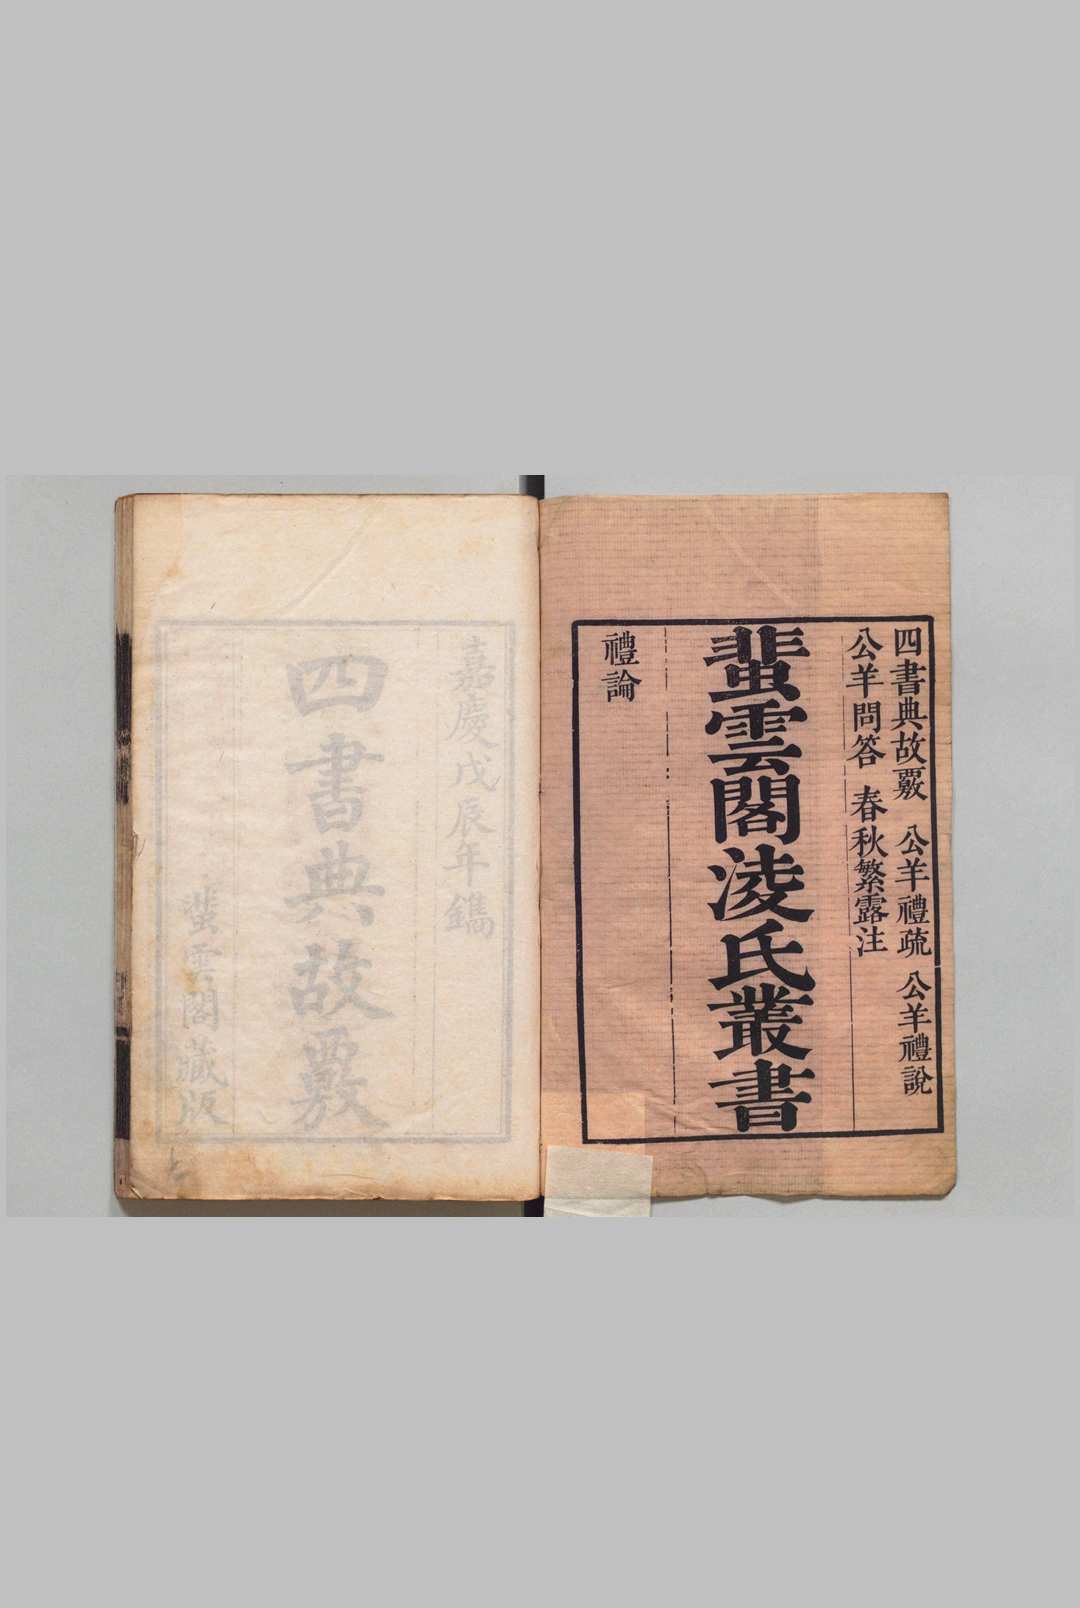 四書典故覈 公羊禮疏 公羊禮說
公羊問答 春秋繁露注
蜚雲閣淩氏叢書
禮論
嘉慶戊辰年鐫
四書典故覈
蜚雲閣藏版